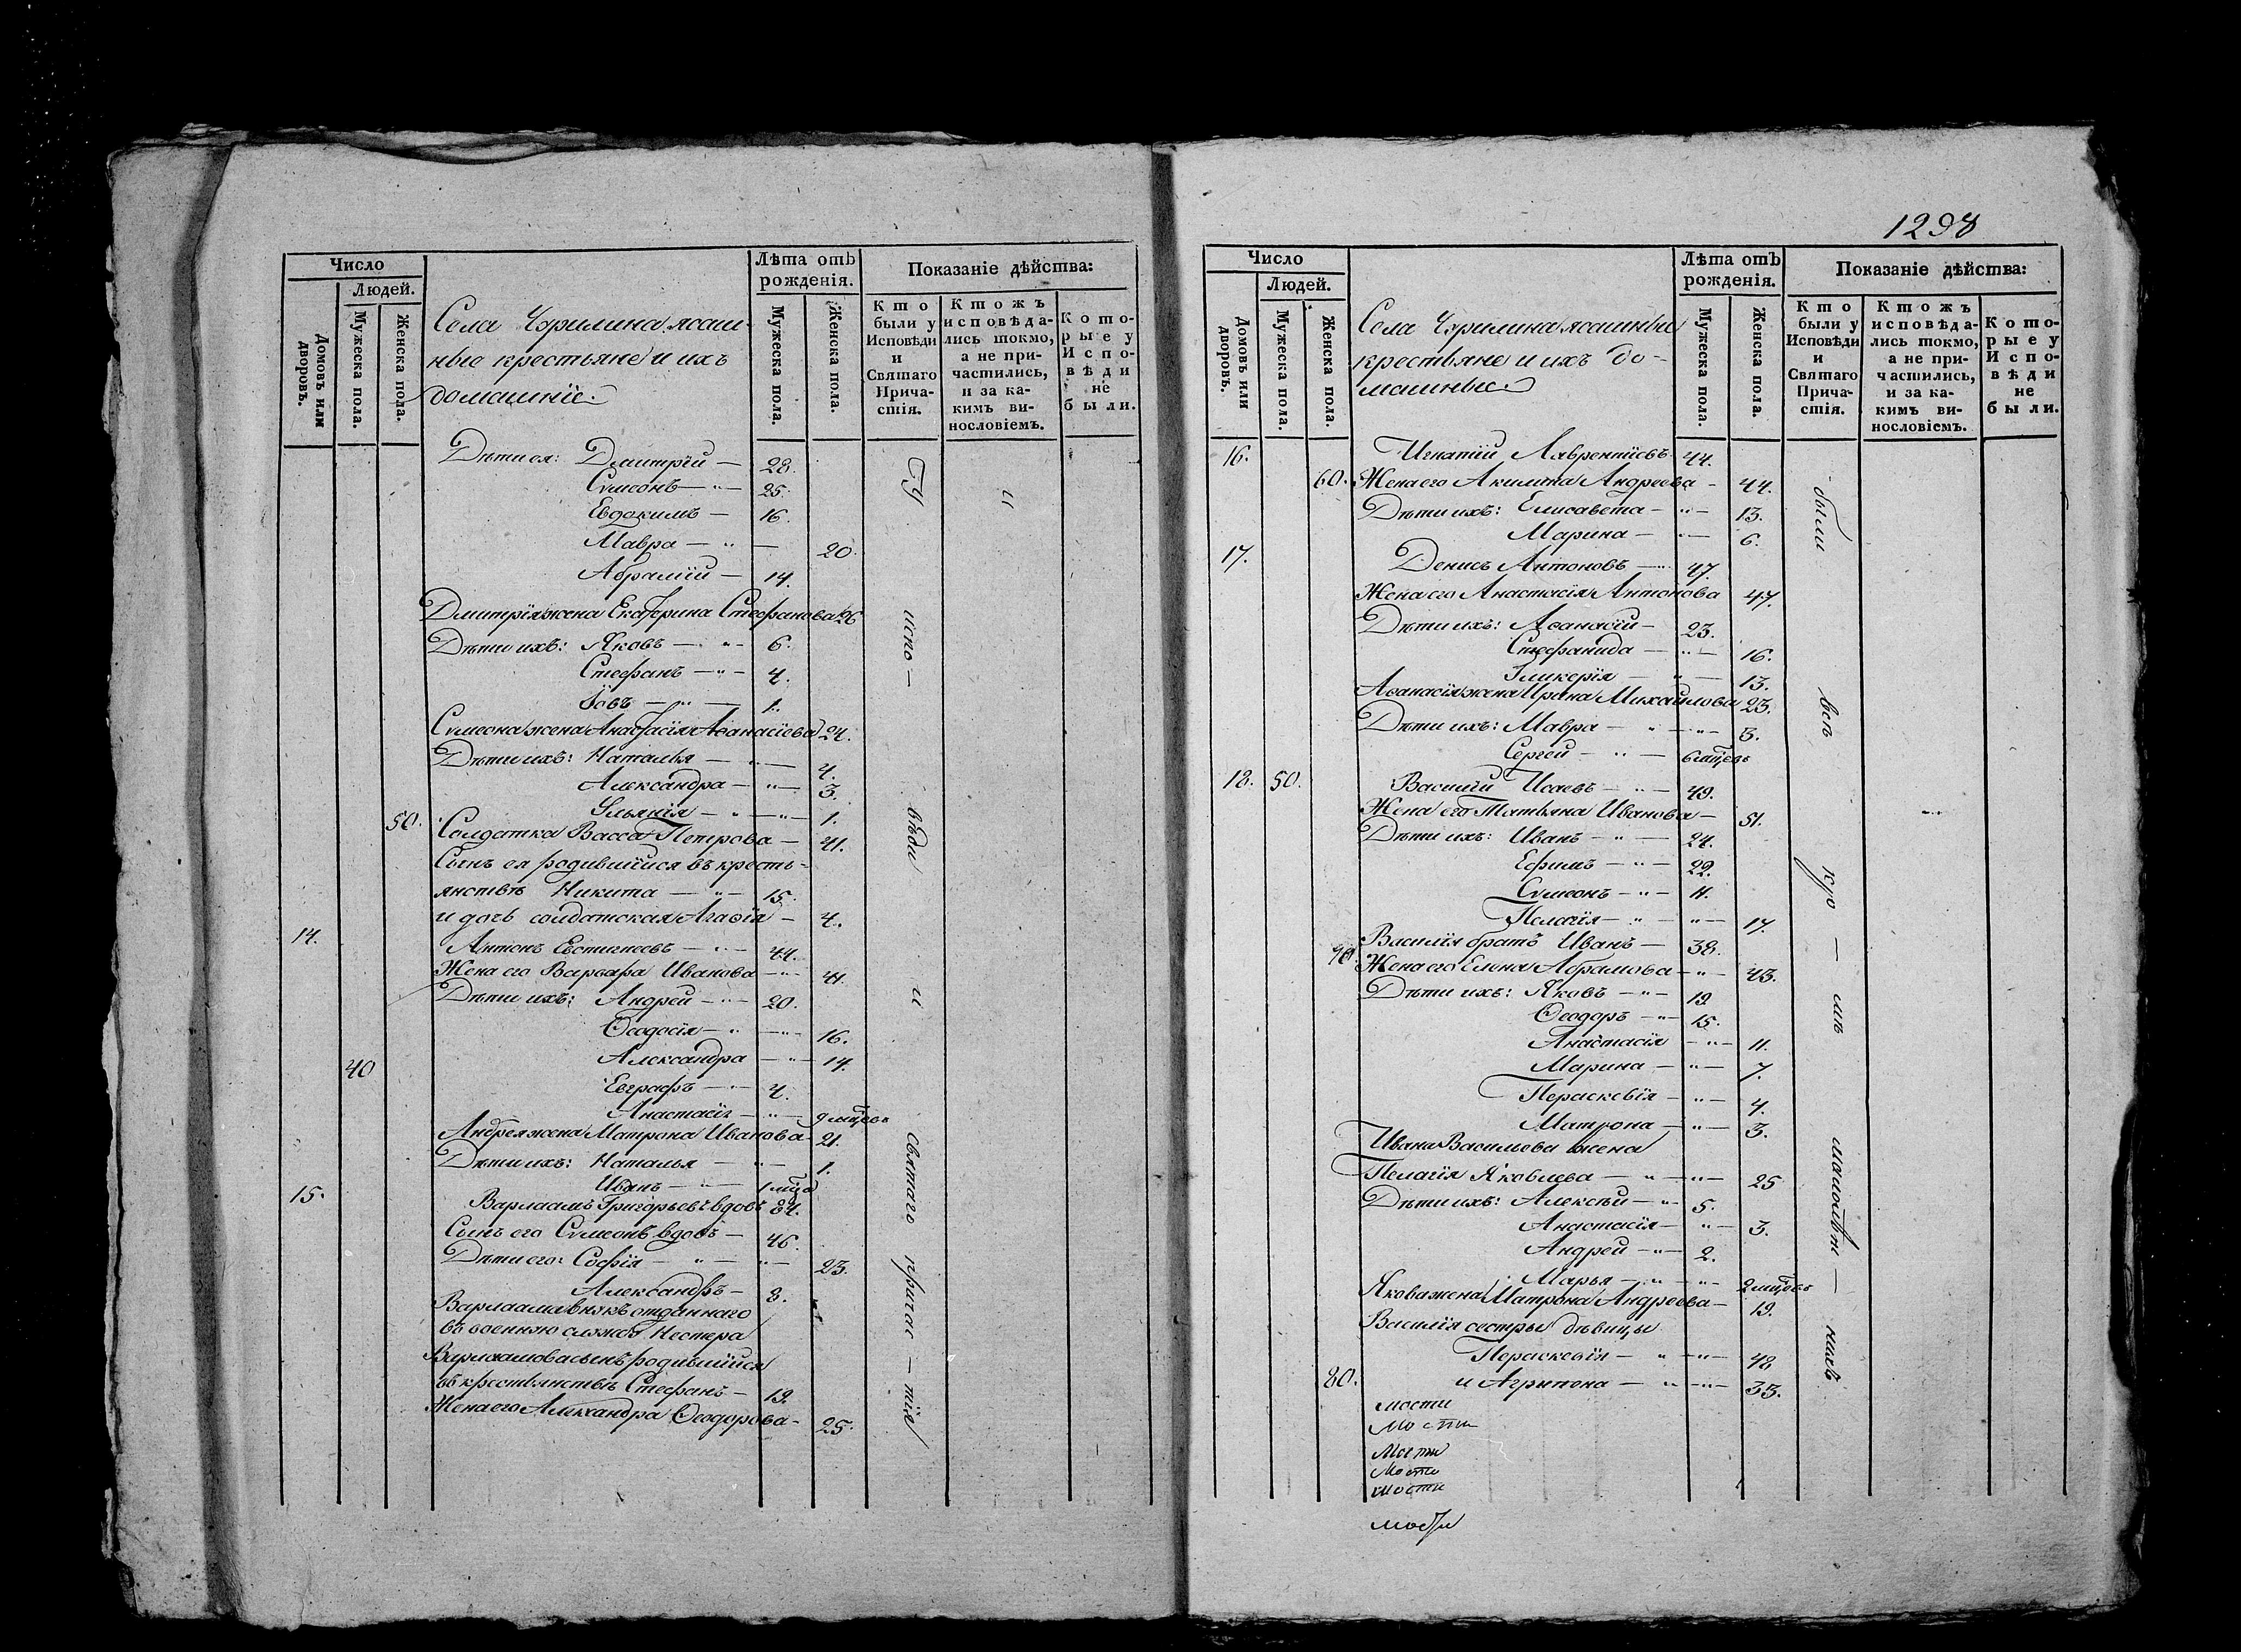 Число
Людей.
Домовъ или дворовъ.
Мужеска пола.
Женска пола.
Села Чурилина ясаш-
ные крестьяне и ихъ
домашніе.
Лѣта отъ
рожденія.
Мужеска пола.
Женска пола.
Показаніе дѣйства:
Кто были у Исповѣди и Святаго Причастія.
Ктожъ исповѣдались токмо, а не причастились, и за какимъ винословіемъ.
Которые у Исповѣди не были.
Дѣти ея: Дмитрій — 28.
Сѵмеонъ — 25.
Евдокимъ — 16.
Мавра — 20.
Абрамій — 14.
Дмитрія жена Екатерина Стефанова 26
Дѣти ихъ: Яковъ — 6.
Стефанъ — 4.
Іовъ — 1.
Сѵмеона жена Анастасія Аѳанасіева 24.
Дѣти ихъ: Наталья — 4.
Александра — 3.
Ульянія — 1.
50. Солдатка Васса Петрова — 41.
Сынъ ея родившійся въ кресть-
янствѣ Никита — 15.
и дочь солдатская Агаѳія — 4.
14. Антонъ Евстигнеевъ — 44.
Жена его Варвара Иванова — 41.
Дѣти ихъ: Андрей — 20.
Ѳеодосія — 16.
Александра — 14.
40 Евграфъ — 4.
Анастасія — 9 мцевъ
Андрея жена Матрона Иванова — 21.
Дѣти ихъ: Наталья — 1.
Иванъ — 1 мца
15. Варлаамъ Григорьевъ вдовъ 84.
Сынъ его Сѵмеонъ вдовъ — 46.
Дѣти его: Софія — 23.
Александръ — 8.
Варлаама внукъ отданнаго
въ военную службу Нестера
Варлаамова сынъ родившійся
въ крестьянствѣ Стефанъ — 19.
Жена его Александра Ѳеодорова — 25.
у и
испо-
вѣди
и
святаго
причас-
тія
1298
Число
Людей.
Домовъ или дворовъ.
Мужеска пола.
Женска пола.
Села Чурилина ясашные
крестьяне и ихъ до-
машные.
Лѣта отъ
рожденія.
Мужеска пола.
Женска пола.
Показаніе дѣйства:
Кто были у Исповѣди и Святаго Причастія.
Ктожъ исповѣдались токмо, а не причастились, и за какимъ винословіемъ.
Которые у Исповѣди не были.
16. Игнатій Лаврентіевъ 44.
60. Жена его Акилина Андреева — 44.
Дѣти ихъ: Елисавета — 13.
Марина — 6.
17. Денисъ Антоновъ — 47.
Жена его Анастасія Антонова 47.
Дѣти ихъ: Аѳанасій — 23.
Стефанида — 16.
Гликерія — 13.
Аѳанасія жена Ирина Михайлова 23.
Дѣти ихъ: Мавра — 3.
Сергей — 6 мцевъ
18. 50. Василій Исаевъ — 49.
Жена его Татьяна Иванова — 51.
Дѣти ихъ: Иванъ — 24.
Ефимъ — 22.
Сѵмеонъ — 11.
Пелагія — 17.
Василія братъ Иванъ — 38.
70. Жена его Елена Абрамова — 43.
Дѣти ихъ: Яковъ — 19
Ѳеодоръ — 15.
Анастасія — 11.
Марина — 7.
Пераскевія — 4.
Матрона — 3.
Ивана Васильева жена
Пелагія Яковлева — 25
Дѣти ихъ: Алексѣй — 5.
Анастасія — 3.
Андрей — 2.
Марья — 2 мцевъ
Якова жена Матрона Андреева — 19.
Василія сестры дѣвицы
Пераскевія — 48
80. и Агрипена — 33.
были
всѣ
кро-
мѣ
малолѣт-
нихъ
мости
мости
мости
мости
мости
мости